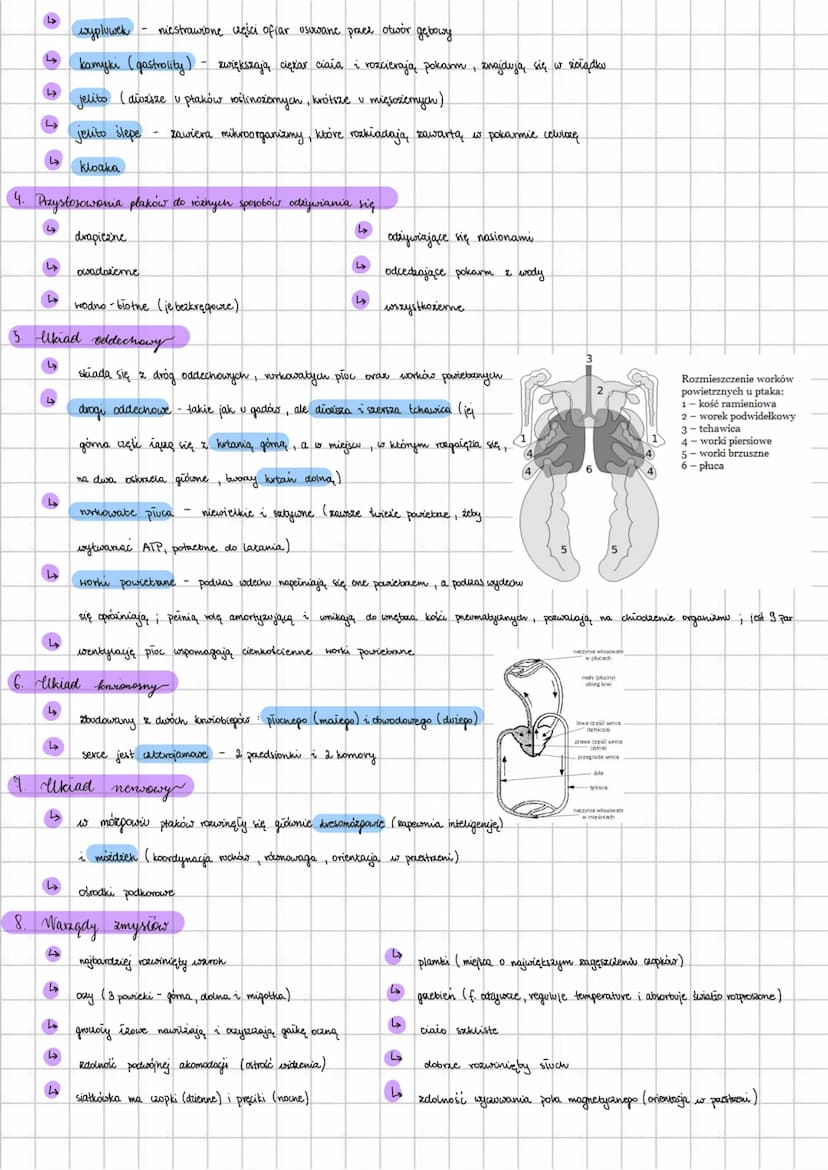 ↳ wypluwek - niestrawione części ofiar usuwane przez otwór gębowy
↳ kamyki (gastrolity) - zwiększają ciężar ciała i rozcierają pokarm, znajdują się w żołądku
↳ jelito (dłuższe u ptaków roślinożernych, krótsze u mięsożernych)
↳ jelito ślepe - zawiera mikroorganizmy, które rozkładają zawartą w pokarmie celulozę
↳ kloaka
4. Przystosowania ptaków do różnych sposobów odżywiania się
↳ drapieżne
↳ owadożerne
↳ wodno-błotne (je bezkręgowce)
↳ odżywiające się nasionami
↳ odcedzające pokarm z wody
↳ wszystkożerne
5 Układ oddechowy
↳ składa się z dróg oddechowych, rurkowatych płuc oraz worków powietrznych
↳ drogi oddechowe - takie jak u gadów, ale dłuższa i szersza tchawica (jej
górna część łączy się z krtanią górną, a w miejscu, w którym rozgałęzia się,
na dwa oskrzela główne, tworzy krtań dolną)
↳ rurkowate płuca - niewielkie i sztywne (zawsze świeże powietrze, żeby
wytwarzać ATP, potrzebne do latania)
↳ worki powietrzne - podczas wdechu napełniają się one powietrzem, a podczas wydechu
się opróżniają; pełnią rolę amortyzującą i wnikają do wnętrza kości pneumatycznych, pozwalają na chłodzenie organizmu; jest 9 par
↳ wentylację płuc wspomagają cienkościenne worki powietrzne
3
2
1
1
4
4
4
4
6
5
5
Rozmieszczenie worków
powietrznych u ptaka:
1 – kość ramieniowa
2 – worek podwidełkowy
3 – tchawica
4 – worki piersiowe
5 – worki brzuszne
6 – płuca
6. Układ krwionośny
↳ zbudowany z dwóch krwiobiegów: płucnego (małego) i obwodowego (dużego)
↳ serce jest czterojamowe - 2 przedsionki i 2 komory
naczynia włosowate
w płucach
mały (płucny)
obieg krwi
lewa część serca
(tętnicza)
prawa część serca
(żylna)
przegroda serca
żyła
tętnica
naczynia włosowate
w mięśniach
7 Układ nerwowy
↳ w mózgowiu ptaków rozwinęły się głównie kresomózgowie (zapewnia inteligencję)
i móżdżek (koordynacja ruchów, równowaga, orientacja w przestrzeni)
↳ ośrodki podkorowe
8. Narządy zmysłów
↳ najbardziej rozwinięty wzrok
↳ oczy (3 powieki - górna, dolna i migotka)
↳ gruczoły łzowe nawilżają i oczyszczają gałkę oczną
↳ zdolność podwójnej akomodacji (ostrość widzenia)
↳ siatkówka ma czopki (dzienne) i pręciki (nocne)
↳ plamki (miejsca o największym zagęszczeniu czopków)
↳ grzebień (f. odżywcze, reguluje temperature i absorbuje światło rozproszone)
↳ ciało szkliste
↳ dobrze rozwinięty słuch
↳ zdolność wyczuwania pola magnetycznego (orientacja w przestrzeni)